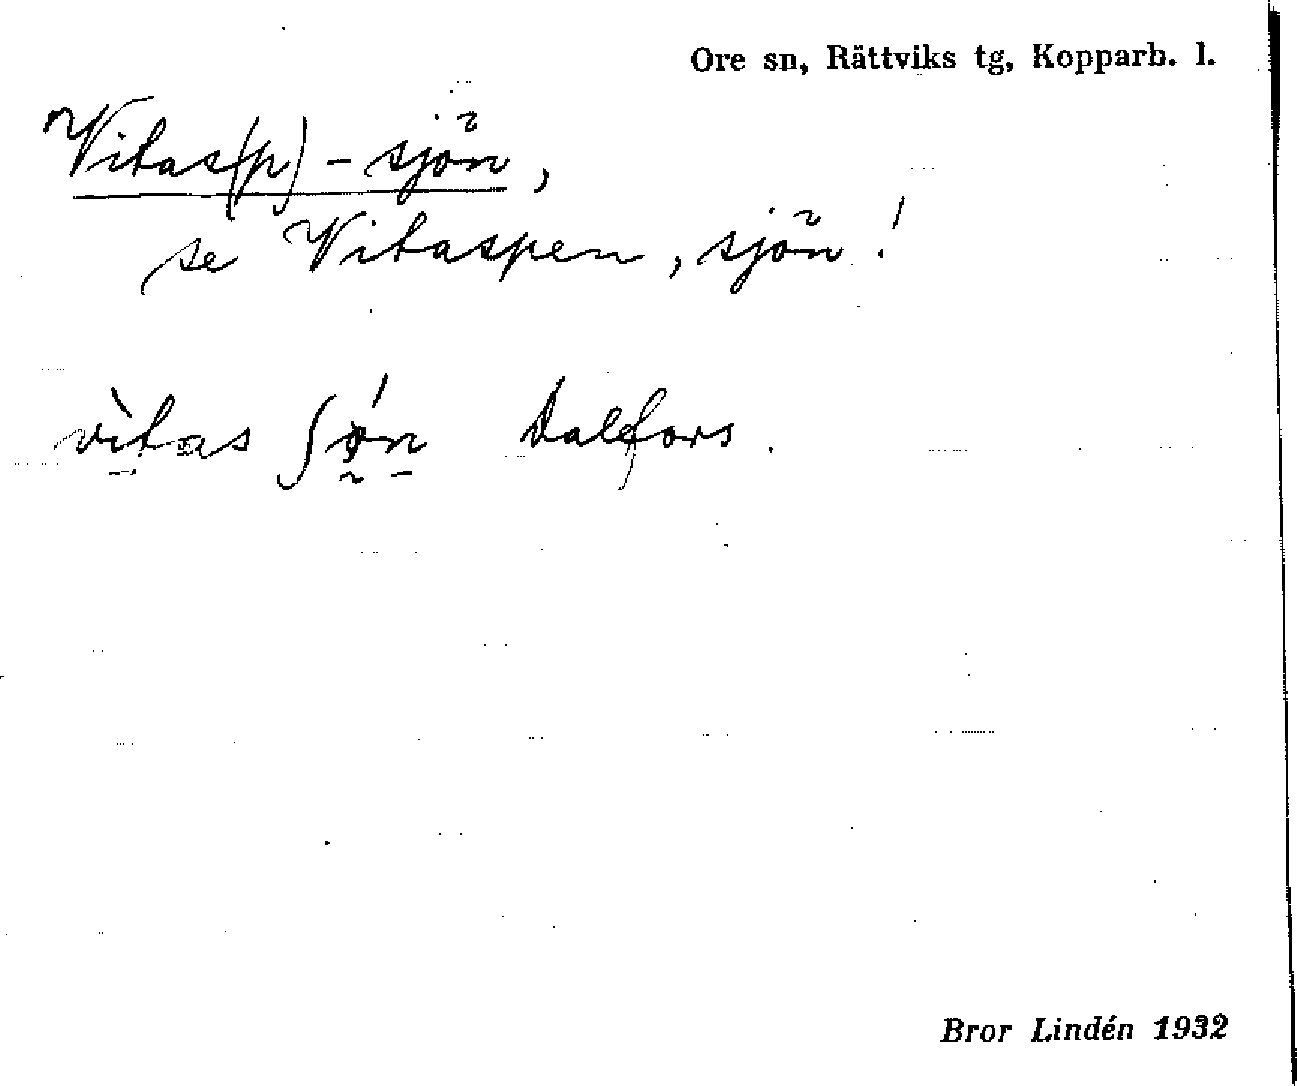 Ore sn, Rättviks tg, Kopparb. l.
Vitas(p)-sjön,
se Vitaspen, sjön!
vìtas ʃǿn Dalfors.
Bror Lindén 1932